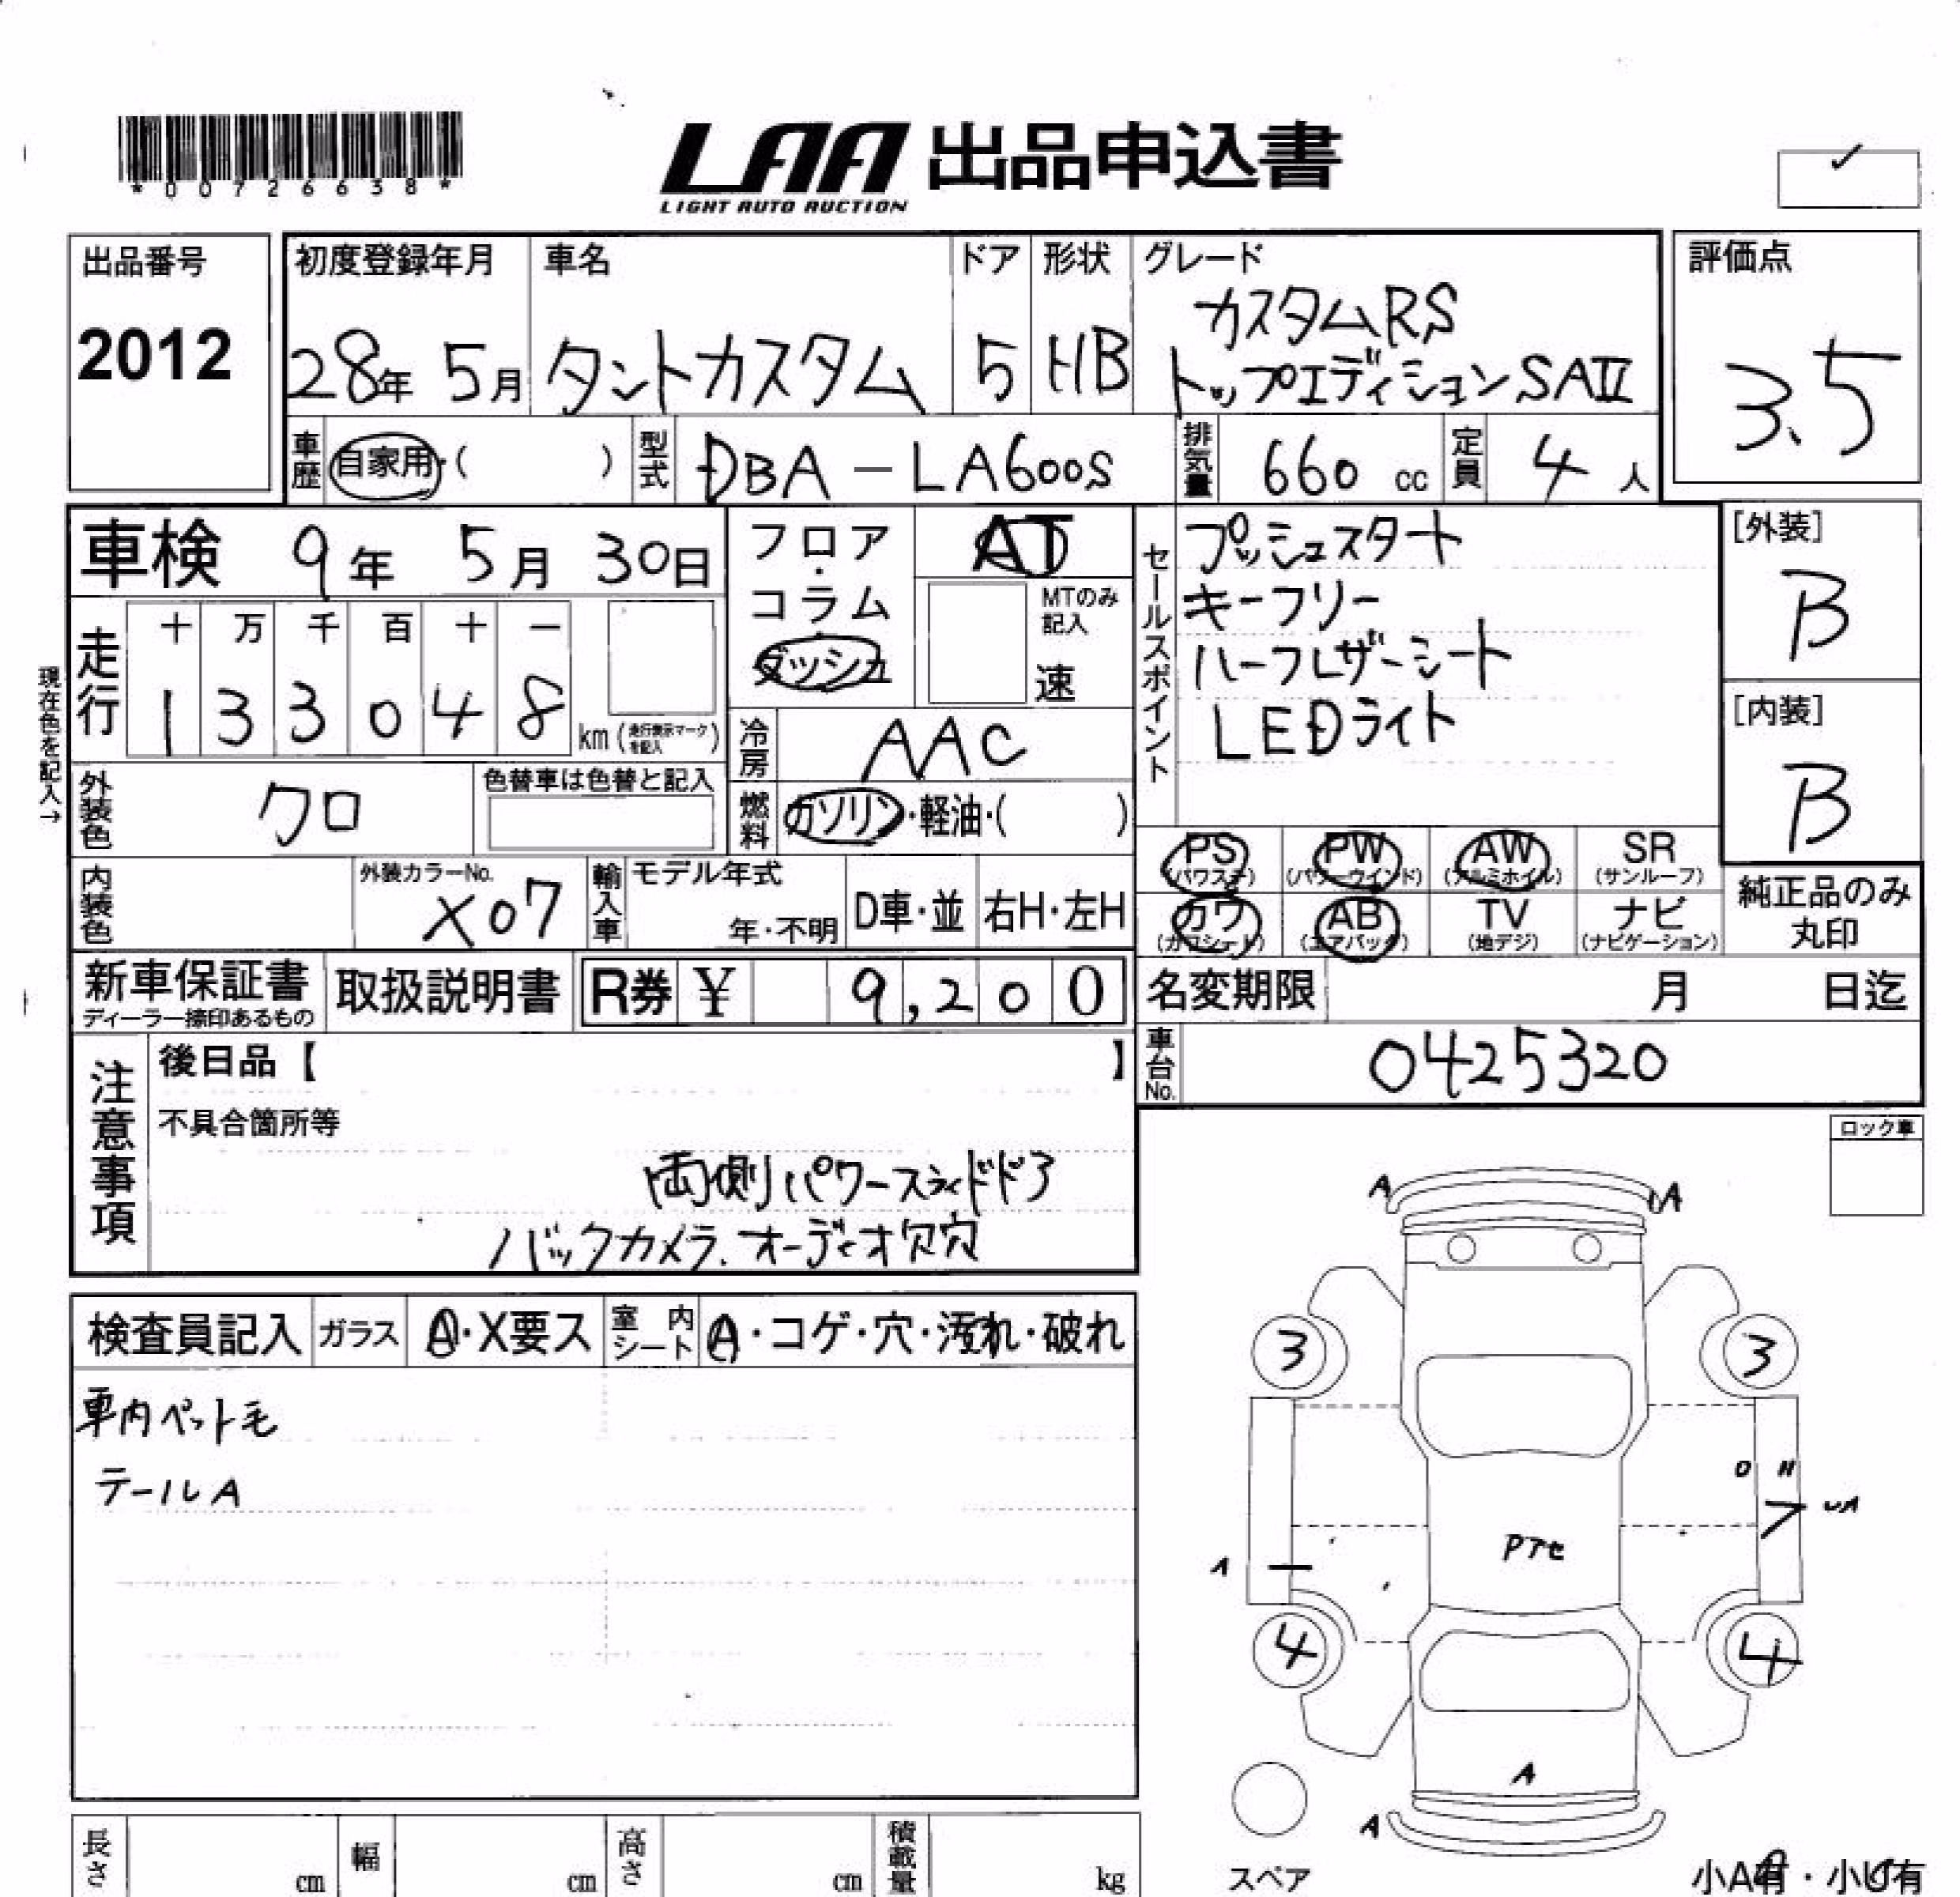 *00726638*
LAA 出品申込書
LIGHT AUTO AUCTION
✓
出品番号
2012
初度登録年月
28年 5月
車名
タントカスタム
ドア
5
形状
HB
グレード
カスタムRS
トップエディションSAⅡ
評価点
3.5
車歴
自家用・( )
型式
DBA-LA600S
排気量
660 cc
定員
4 人
車検 9年 5月 30日
現在色を記入→
走行
十 万 千 百 十 一
1 3 3 0 4 8 km (走行表示マークを記入)
フロア・コラム・ダッシュ
AT
MTのみ記入
速
冷房
AAC
外装色
クロ
色替車は色替と記入
燃料
ガソリン・軽油・( )
内装色
外装カラーNo.
X07
輸入車
モデル年式
年・不明
D車・並
右H・左H
セールスポイント
プッシュスタート
キーフリー
ハーフレザーシート
LEDライト
[外装]
B
[内装]
B
PS (パワステ)
PW (パワーウインド)
AW (アルミホイル)
SR (サンルーフ)
カワ (カワシート)
AB (エアバック)
TV (地デジ)
ナビ (ナビゲーション)
純正品のみ
丸印
新車保証書
ディーラー捺印あるもの
取扱説明書
R券 ¥ 9,200
名変期限 月 日迄
車台No.
0425320
注意事項
後日品【 】
不具合箇所等
両側パワースライドドア
バックカメラ.オーディオ欠穴
ロック車
検査員記入
ガラス
A・X要ス
室内シート
A・コゲ・穴・汚れ・破れ
車内ペット毛
テールA
A A
3 3
O H
UA
A
PTセ
4 4
A
A
スペア
小A有・小U有
長さ cm
幅 cm
高さ cm
積載量 kg